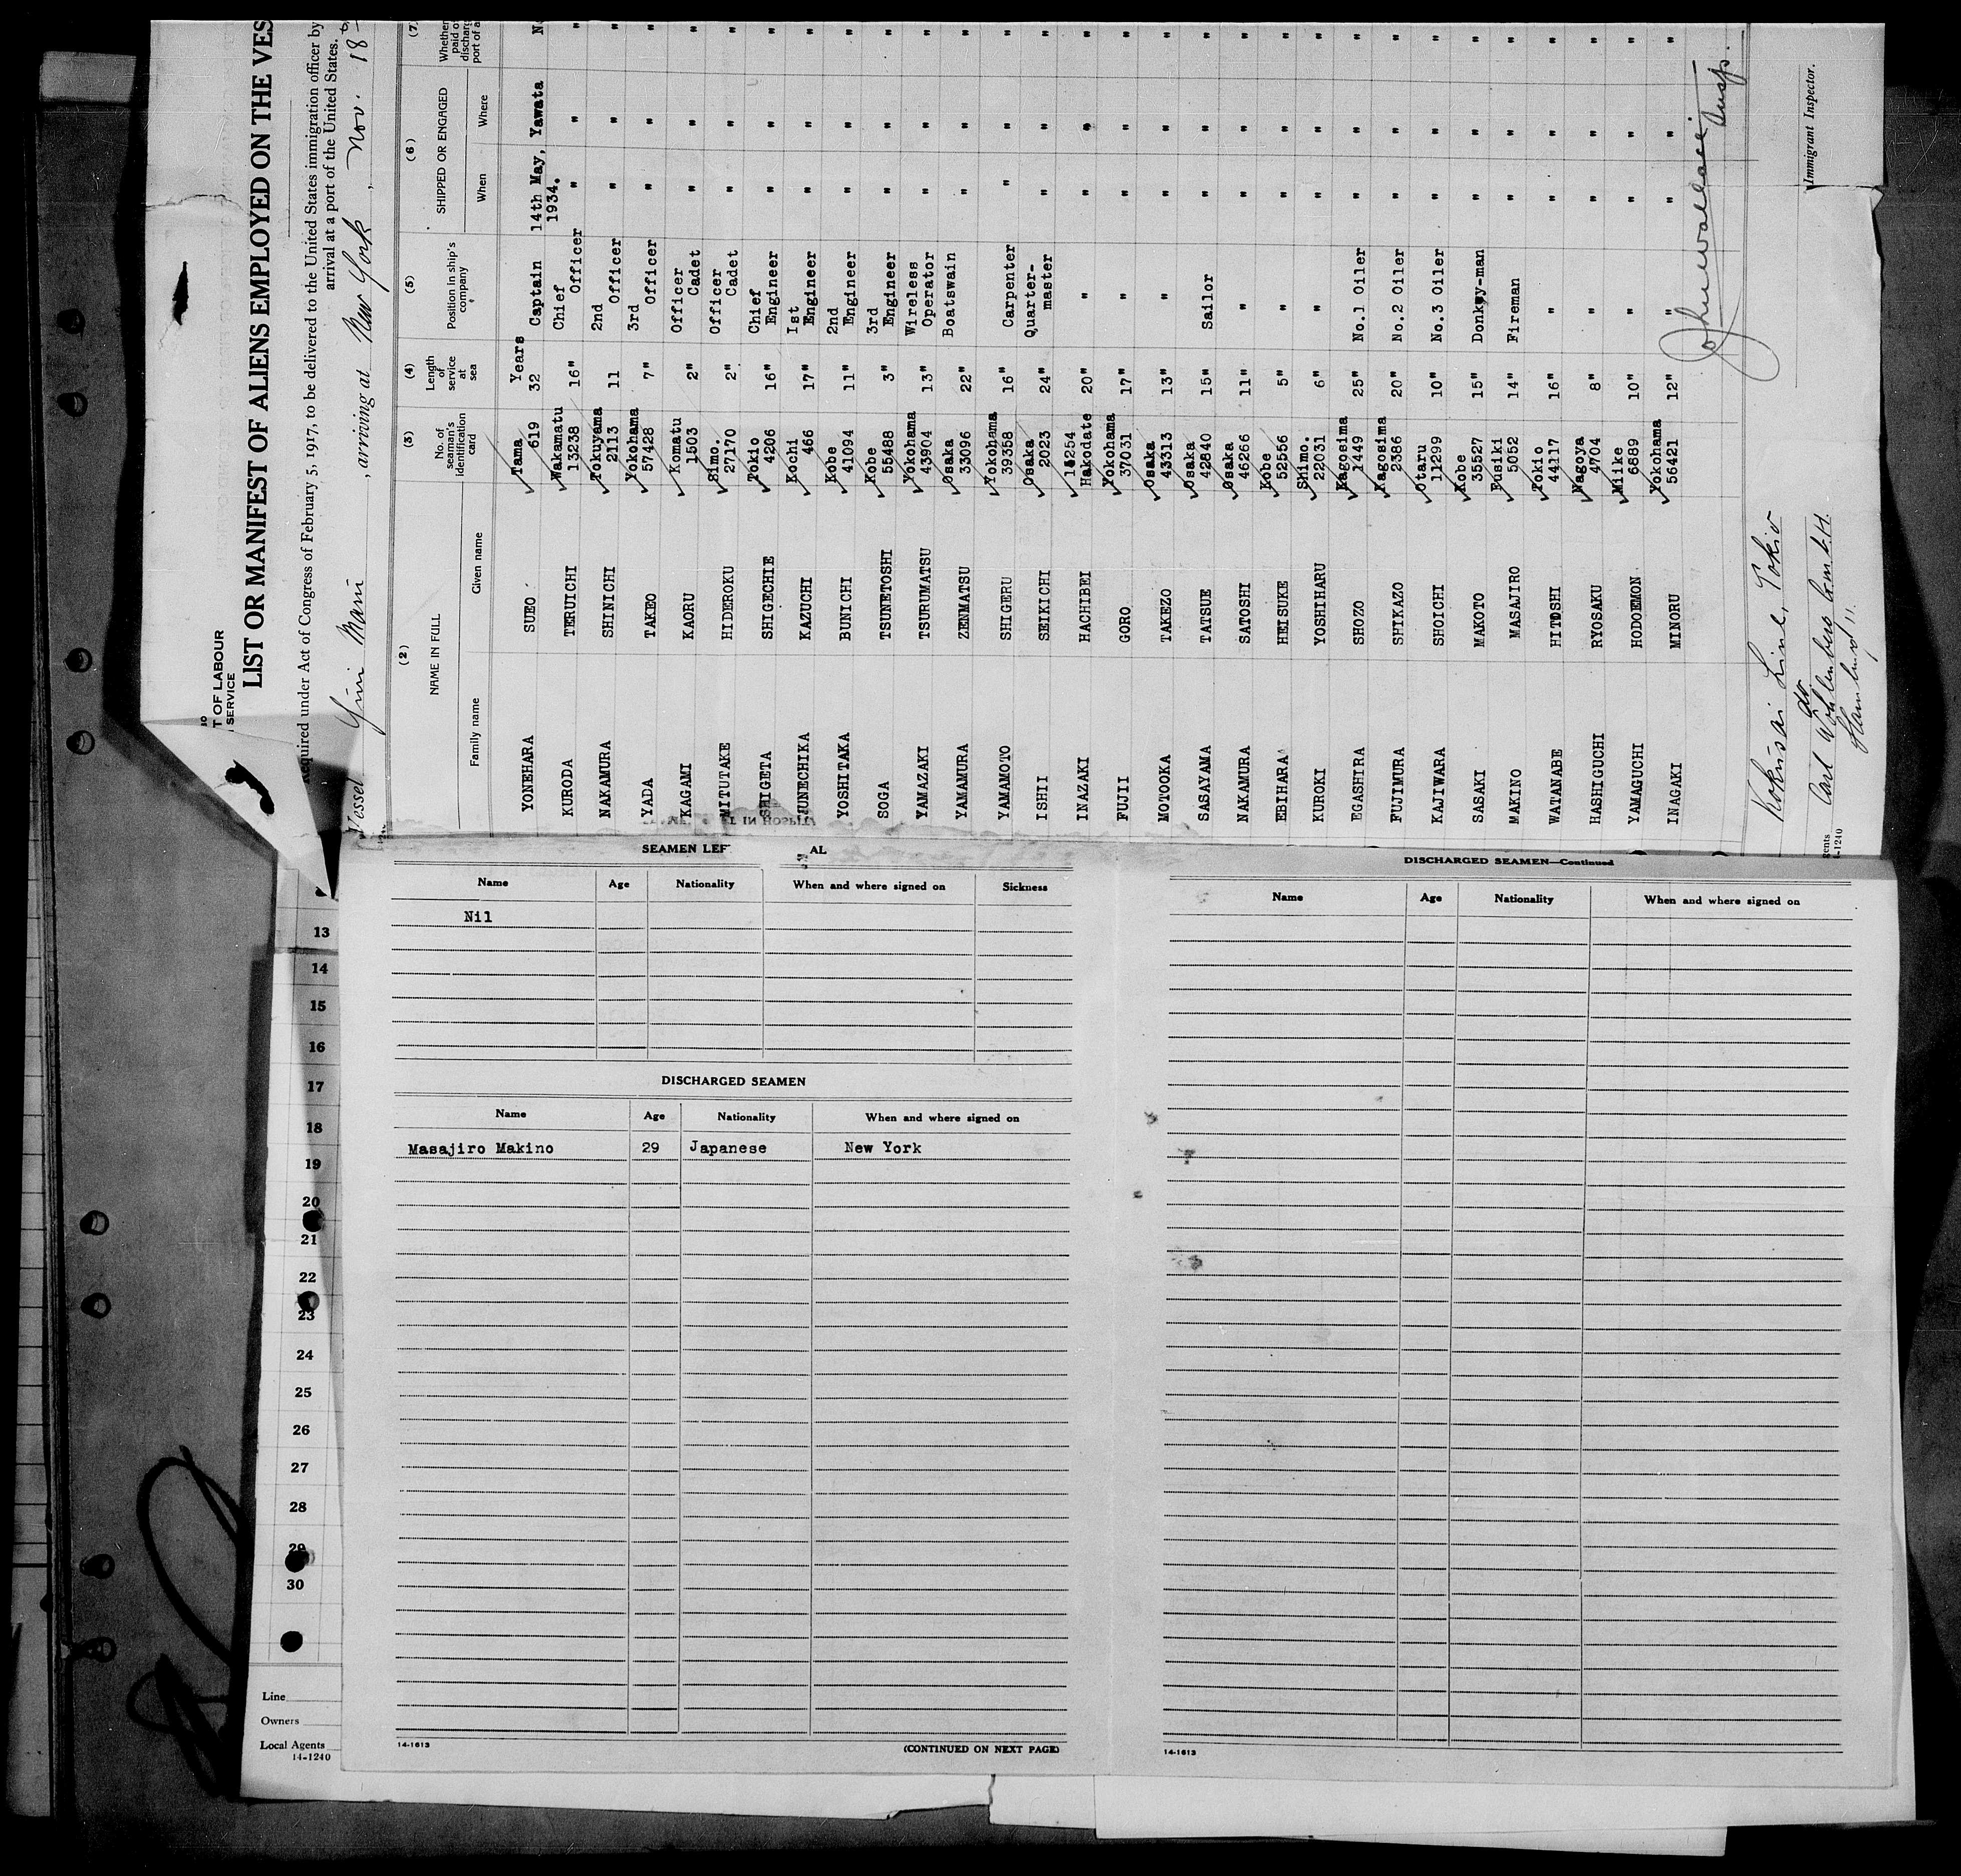 T OF LABOUR
SERVICE
LIST OR MANIFEST OF ALIENS EMPLOYED ON THE VES
Required under Act of Congress of February 5, 1917, to be delivered to the United States immigration officer by
arrival at a port of the United States.
Vessel Maru, arriving at New York, Nov. 18
(2) (3) (4) (5) (6) (7)
NAME IN FULL No. of seaman's identification card Length of service at sea Position in ship's company SHIPPED OR ENGAGED Whether
Family name Given name When Where
YONEHARA SUEO Tama 619 Years 32 Captain 14th May, 1934. Yawata
KURODA TERUICHI Wakamatu 13238 16" Chief Officer " " "
NAKAMURA SHINICHI Tokuyama 2113 11 2nd Officer " " "
YADA TAKEO Yokohama 57428 7" 3rd Officer " " "
KAGAMI KAORU Komatu 1503 2" Officer Cadet " " "
MITUTAKE HIDEROKU Simo. 27170 2" Officer Cadet " " "
SHIGETA SHIGECHIE Tokio 4206 16" Chief Engineer " " "
SUNECHIKA KAZUCHI Kochi 466 17" 1st Engineer " " "
YOSHITAKA BUNICHI Kobe 41094 11" 2nd Engineer " " "
SOGA TSUNETOSHI Kobe 55488 3" 3rd Engineer " " "
YAMAZAKI TSURUMATSU Yokohama 43904 13" Wireless Operator " " "
YAMAMURA ZENMATSU Osaka 33096 22" Boatswain " " "
YAMAMOTO SHIGERU Yokohama 39358 16" Carpenter " " "
ISHII SEIKICHI Osaka 2023 24" Quarter-master " " "
INAZAKI HACHIBEI Hakodate 20" " " " "
FUJII GORO Yokohama 37031 17" " " " "
MOTOOKA TAKEZO Osaka 43313 13" " " " "
SASAYAMA TATSUE Osaka 42840 15" Sailor " " "
NAKAMURA SATOSHI Osaka 46266 11" " " " "
EBIHARA HEISUKE Kobe 52556 5" " " " "
KUROKI YOSHIHARU Shimo. 22031 6" " " " "
EGASHIRA SHOZO Kagosima 1449 25" No.1 Oiler " " "
FUJIMURA SHIKAZO Kagosima 2386 20" No.2 Oiler " " "
KAJIWARA SHOICHI Otaru 11299 10" No.3 Oiler " " "
SASAKI MAKOTO Kobe 35527 15" Donkey-man " " "
MAKINO MASAJIRO Fusiki 5052 14" Fireman " " "
WATANABE HITOSHI Tokio 44117 16" " " " "
HASHIGUCHI RYOSAKU Nagoya 4704 8" " " " "
YAMAGUCHI HODOEMON Miike 6889 10" " " " "
INAGAKI MINORU Yokohama 56421 12" " " " "
Immigrant Inspector.
Kokusai Line, Tokio
do.
Carl
Hamburg 11.
14-1240
SEAMEN LEF AL
Name Age Nationality When and where signed on Sickness
Nil
DISCHARGED SEAMEN
Name Age Nationality When and where signed on
Masajiro Makino 29 Japanese New York
14-1613
(CONTINUED ON NEXT PAGE)
DISCHARGED SEAMEN—Continued
Name Age Nationality When and where signed on
14-1613
13
14
15
16
17
18
19
20
21
22
23
24
25
26
27
28
29
30
Line
Owners
Local Agents
14-1240